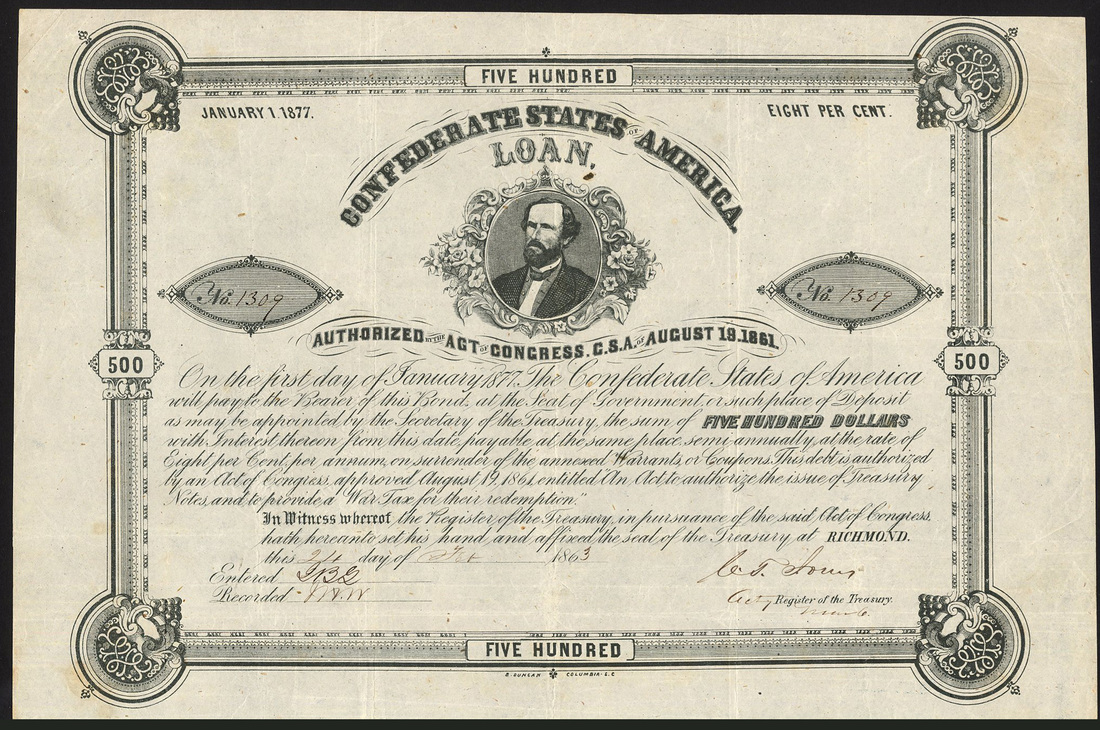 FIVE HUNDRED
JANUARY 1. 1877.
EIGHT PER CENT.
CONFEDERATE STATES OF AMERICA.
LOAN,
No. 1309
No. 1309
AUTHORIZED BY THE ACT OF CONGRESS. C.S.A. OF AUGUST 19. 1861.
500
500
On the first day of January 1877, The Confederate States of America
will pay to the Bearer of this Bond, at the Seat of Government, or such place of Deposit
as may be appointed by the Secretary of the Treasury, the sum of FIVE HUNDRED DOLLARS
with Interest thereon from this date, payable at the same place semi annually, at the rate of
Eight per Cent, per annum, on surrender of the annexed Warrants, or Coupons. This debt is authorized
by an Act of Congress, approved August 19, 1861, entitled "An Act to authorize the issue of Treasury
Notes, and to provide a War Tax for their redemption."
In Witness whereof the Register of the Treasury, in pursuance of the said Act of Congress,
hath hereunto set his hand, and affixed the seal of the Treasury at RICHMOND.
this 24 day of 1863
Entered
Recorded
Register of the Treasury.
FIVE HUNDRED
B. DUNCAN COLUMBIA S.C